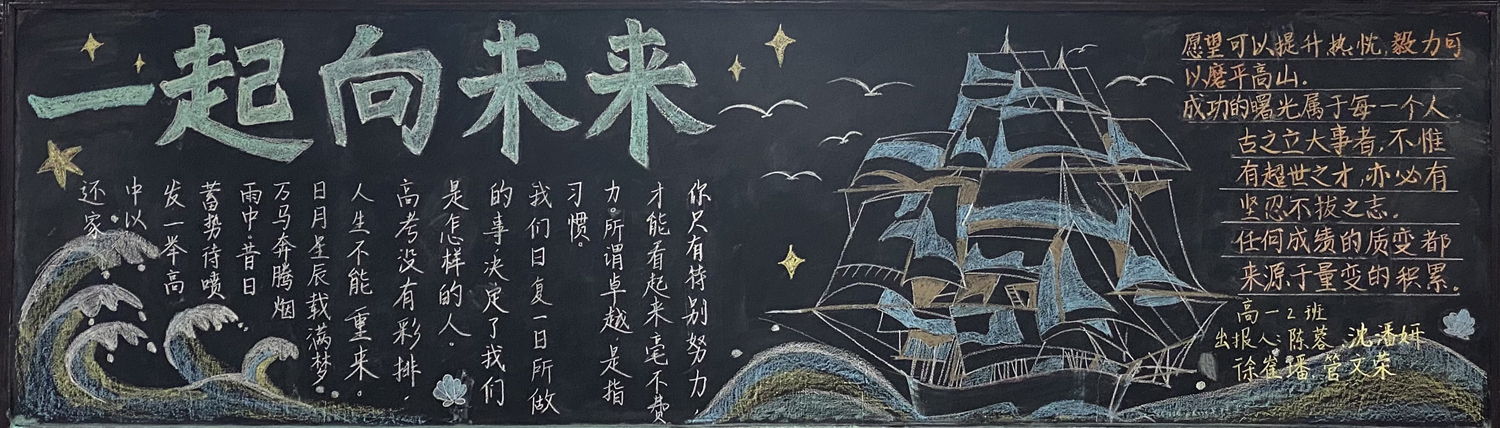 一起向未来
你只有特别努力，
才能看起来毫不费
力。所谓卓越，是指
习惯。
我们日复一日所做
的事决定了我们
是怎样的人。
高考没有彩排，
人生不能重来。
日月星辰载满梦。
万马奔腾烟
雨中。昔日
蓄势待喷
发一举高
中以
还家
愿望可以提升热忱，毅力可
以磨平高山。
成功的曙光属于每一个人。
古之立大事者，不惟
有超世之才，亦必有
坚忍不拔之志。
任何成绩的质变都
来源于量变的积累。
高一2班
出报人：陈蓉、沈潘妍
徐崔璠 管文荣